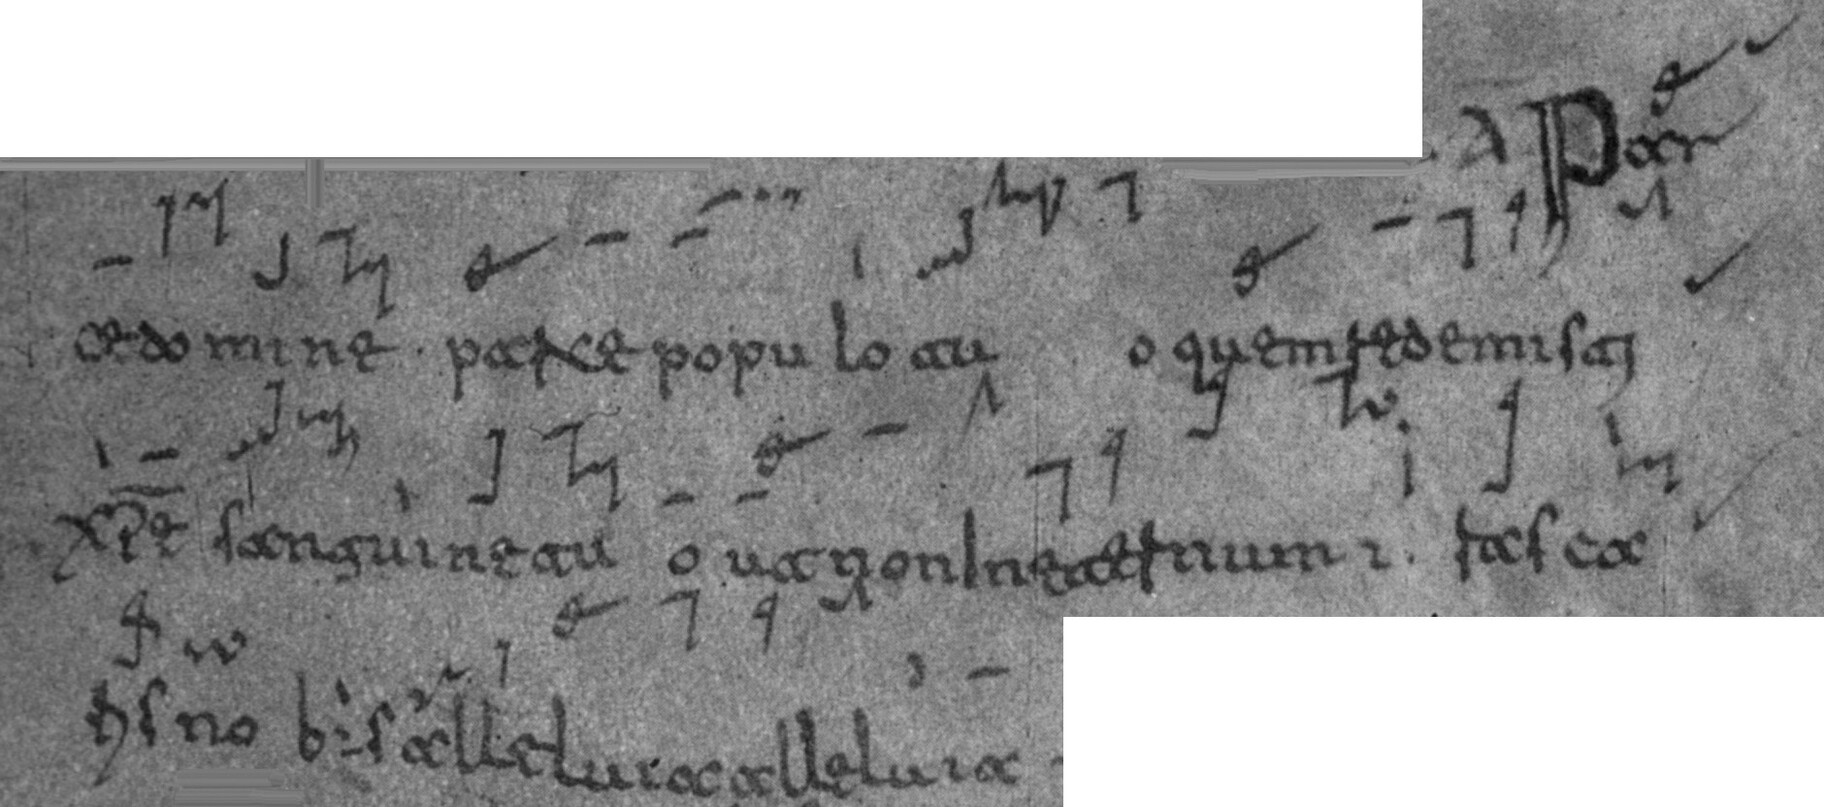 A Par
ce domine parce populo tuo quem redemisti
xpe sanguine tuo ut non in eternum i rasca
ris nobis alleluia alleluia